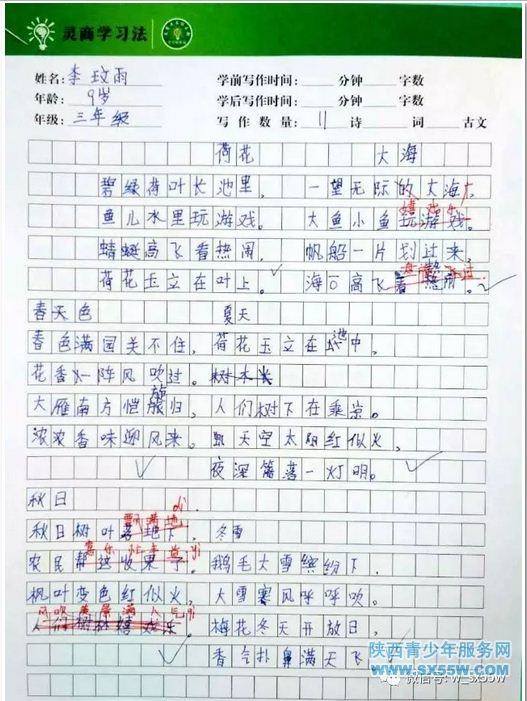 灵商学习法
姓名：李玟雨 学前写作时间： 分钟 字数
年龄：9岁 学后写作时间： 分钟 字数
年级：三年级 写作数量：11诗 词 古文
荷花 大海
碧绿荷叶长池里， 一望无际的大海，
嬉戏乐
鱼儿水里玩游戏。 大鱼小鱼玩游戏。
蜻蜓高飞看热闹， 帆船一片划过来，
荷花玉立在叶上。 海鸥高飞看热闹。
春天色 夏天
春色满园关不住， 荷花玉立在池中，
花香一阵风吹过。 树木
大雁南方恺旋归， 人们树下在乘凉。
浓浓香味迎风来。 天空太阳红似火，
夜深篱落一灯明。
秋日
飘满地
秋日树叶落地下， 冬雪
农民帮这收果子。 鹅毛大雪缤纷下，
枫叶变色红似火， 大雪寒风呼呼吹。
人们树林嬉戏乐。 梅花冬天开放日，
香气扑鼻满天飞。
陕西青少年服务网
www.sx55w.com
微信号: w_sx55w